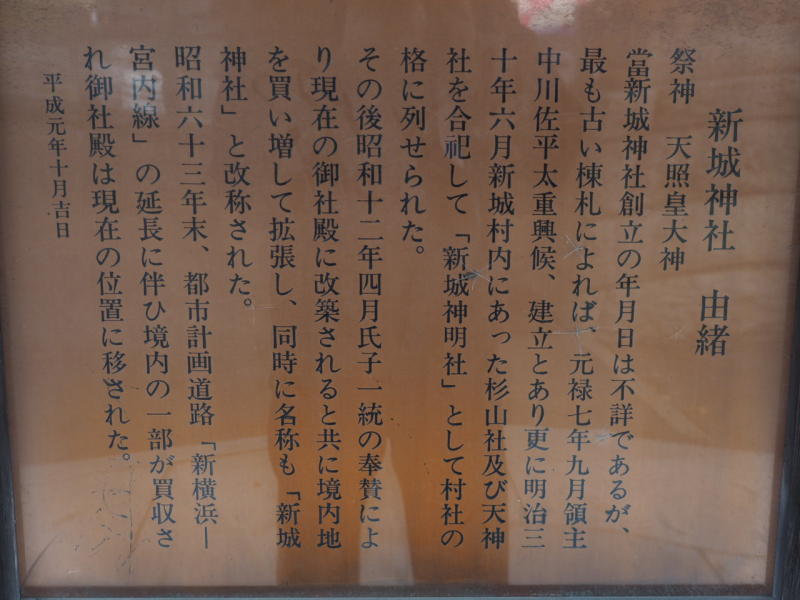 新城神社　由緒
祭神　天照皇大神
當新城神社創立の年月日は不詳であるが、
最も古い棟札によれば、元禄七年九月領主
中川佐平太重興候、建立とあり更に明治三
十年六月新城村内にあった杉山社及び天神
社を合祀して「新城神明社」として村社の
格に列せられた。
その後昭和十二年四月氏子一統の奉賛によ
り現在の御社殿に改築されると共に境内地
を買い増して拡張し、同時に名称も「新城
神社」と改称された。
昭和六十三年末、都市計画道路「新横浜ー
宮内線」の延長に伴ひ境内の一部が買収さ
れ御社殿は現在の位置に移された。
平成元年十月吉日